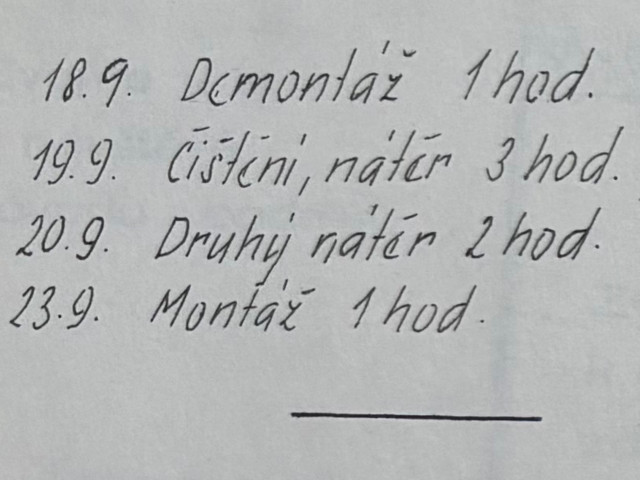 18.9. Demontáž 1 hod.
19.9. Čištění, nátěr 3 hod.
20.9. Druhý nátěr 2 hod.
23.9. Montáž 1 hod.